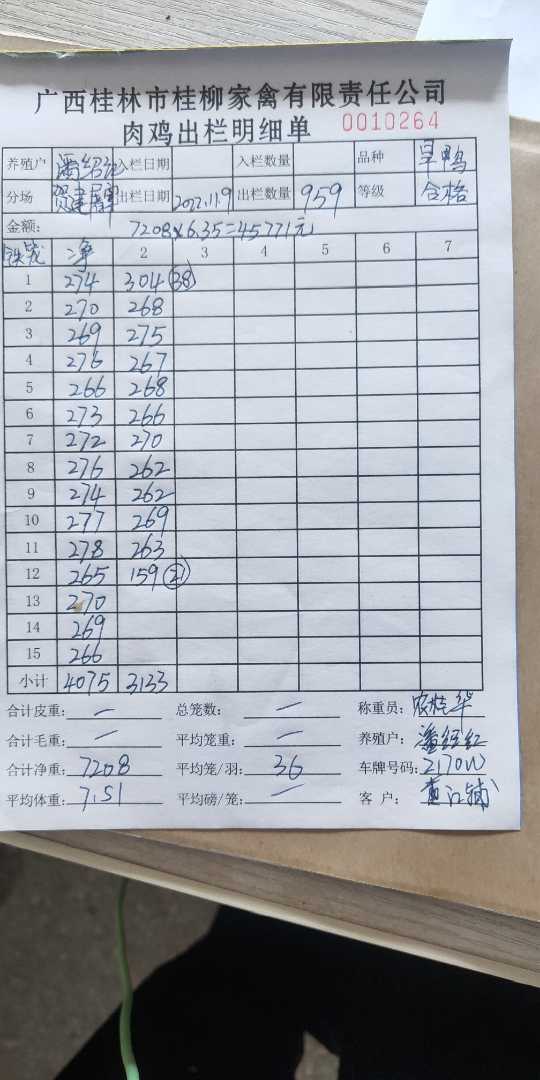 广西桂林市桂柳家禽有限责任公司
肉鸡出栏明细单 0010264
养殖户 入栏日期 入栏数量 品种 旱鸭
分场 出栏日期 2022.11.9 出栏数量 959 等级 合格
金额: 7208×6.35=45771元
净 2 3 4 5 6 7
1 274 304 38
2 270 268
3 269 275
4 276 267
5 266 268
6 273 266
7 272 270
8 276 262
9 274 262
10 277 269
11 278 263
12 265 159 21
13 270
14 269
15 266
小计 4075 3133
合计皮重: 一 总笼数: 一 称重员:
合计毛重: 一 平均笼重: 一 养殖户:
合计净重: 7208 平均笼/羽: 36 车牌号码: 2170W
平均体重: 7.51 平均磅/笼: 一 客 户: